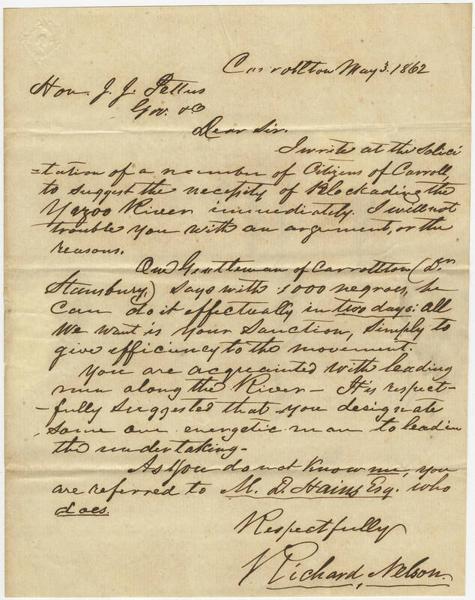 Carrollton May 3. 1862
Hon. J. J. Pettus
Gov. &c
Dear Sir.
I write at the Solici
=tation of a number of Citizens of Carroll,
to suggest the necessity of Blockading the
Yazoo River immediately. I will not
trouble you with an argument, or the
reasons.
One Gentleman of Carrollton (Dr.
Stansbury.) says with 1000 negroes, he
can do it effectually in two days: all
we want is your Sanction, simply to
give efficiency to the movement.
You are acquainted with leading
men along the River - It is respect-
-fully suggested that you designate
some one energetic man to lead in
the undertaking -
As you do not know me, you
are referred to M. D. Hains Esq. who
does.
Respectfully
Richard, Nelson.